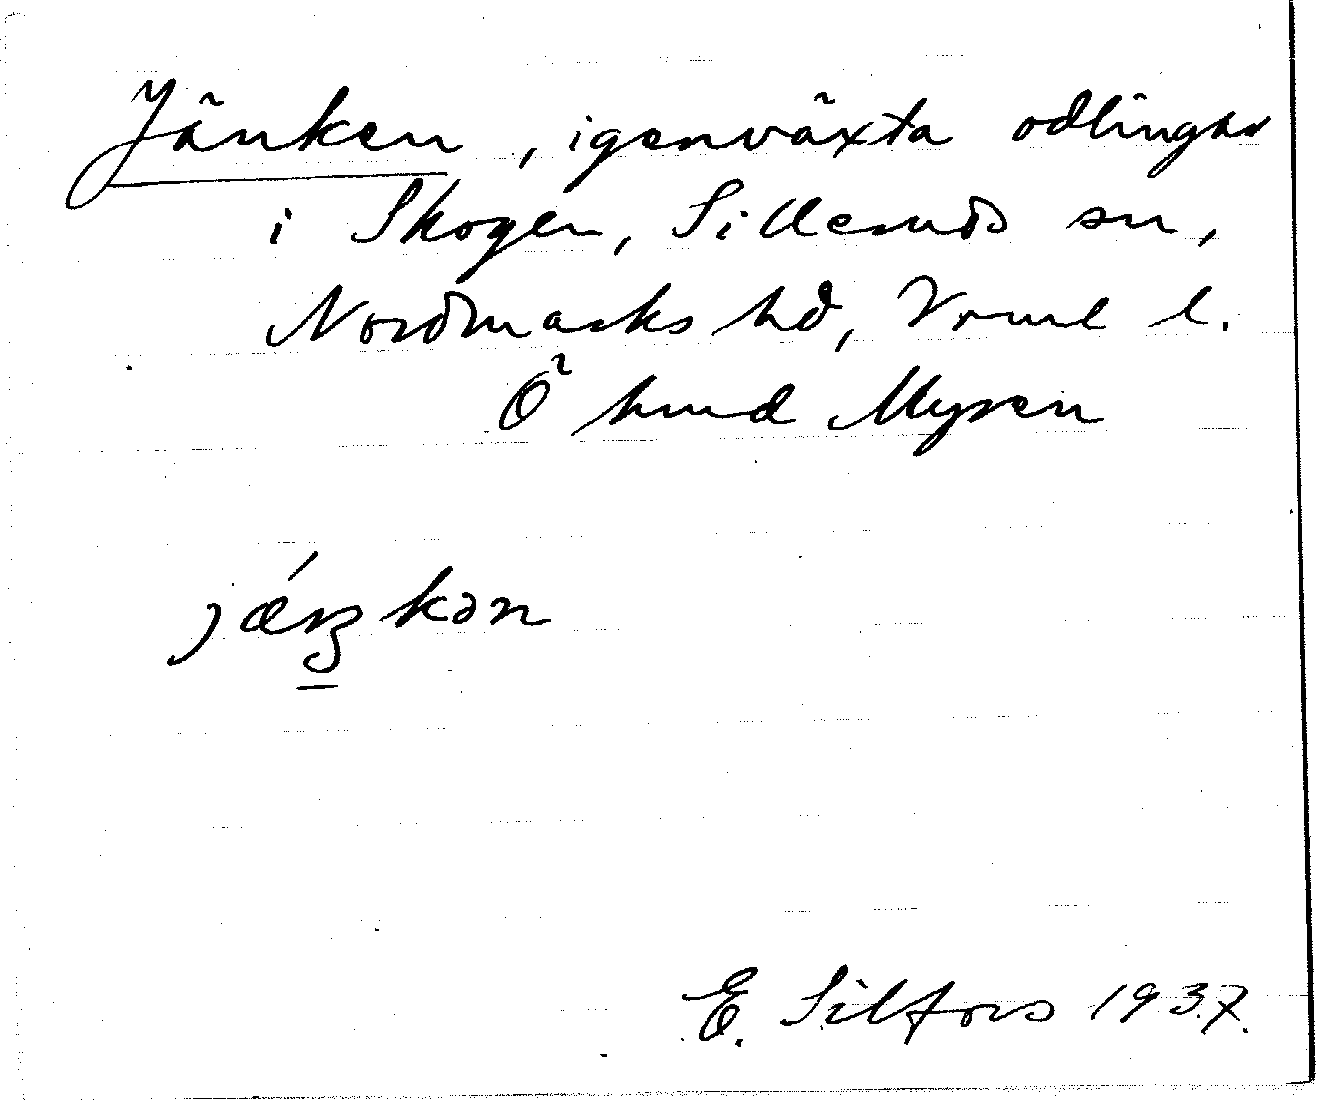 Jänken, igenväxta odlingar
i Skogen, Silleruds sn,
Nordmarks hd, Vrml l.
Ö hmd Myren
jǽŋkən
E. Silfors 1937.